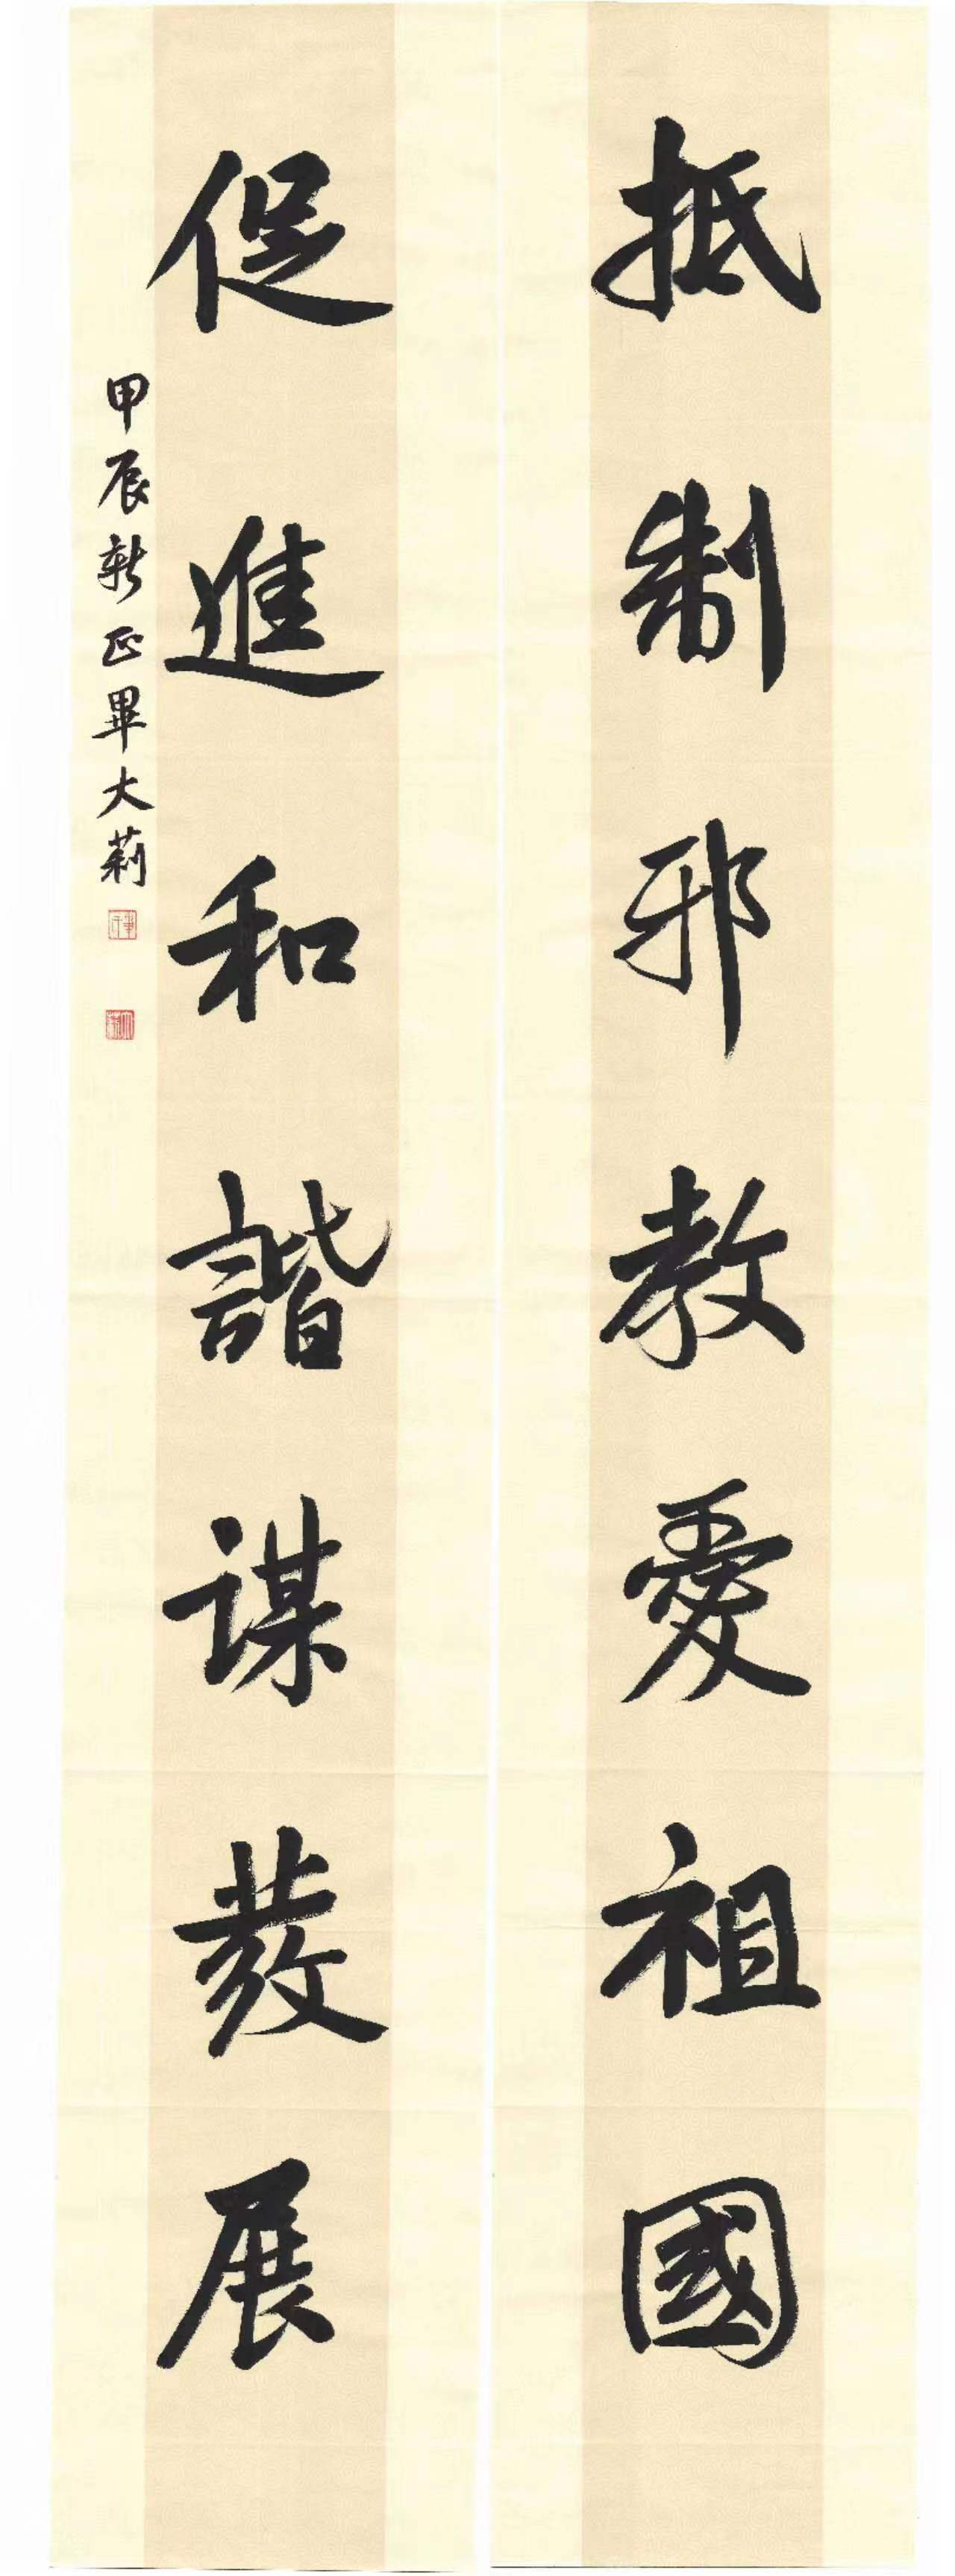 抵制邪教愛祖國
促進和諧謀發展
甲辰新正畢大莉